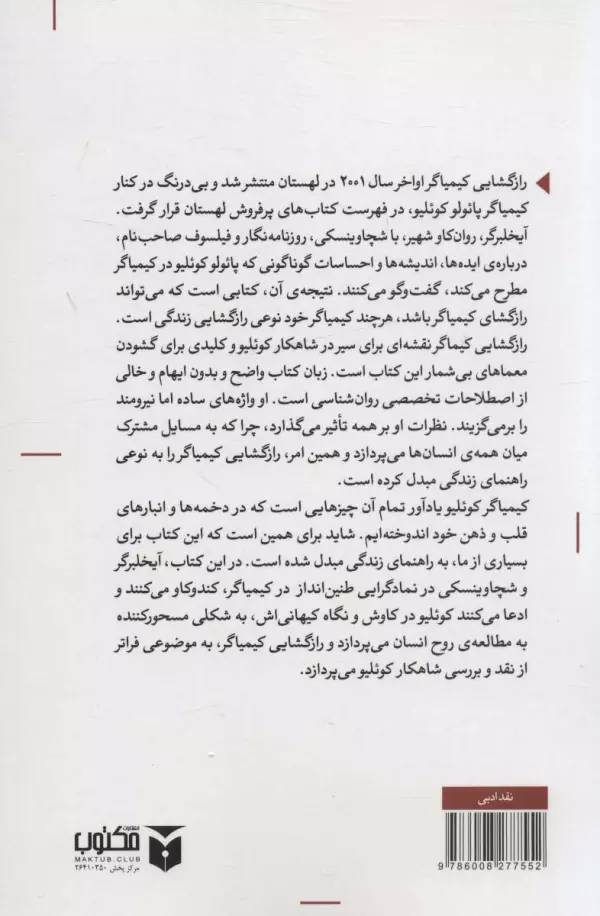 رازگشایی کیمیاگر اواخر سال ۲۰۰۱ در لهستان منتشر شد و بی‌درنگ در کنار
کیمیاگر پائولو کوئلیو، در فهرست کتاب‌های پرفروش لهستان قرار گرفت.
آیخلبرگر، روان‌کاو شهیر، با شچاوینسکی، روزنامه‌نگار و فیلسوف صاحب‌نام،
درباره‌ی ایده‌ها، اندیشه‌ها و احساسات گوناگونی که پائولو کوئلیو در کیمیاگر
مطرح می‌کند، گفت‌وگو می‌کنند. نتیجه‌ی آن، کتابی است که می‌تواند
رازگشای کیمیاگر باشد، هرچند کیمیاگر خود نوعی رازگشایی زندگی است.
رازگشایی کیماگر نقشه‌ای برای سیر در شاهکار کوئلیو و کلیدی برای گشودن
معماهای بی‌شمار این کتاب است. زبان کتاب واضح و بدون ایهام و خالی
از اصطلاحات تخصصی روان‌شناسی است. او واژه‌های ساده اما نیرومند
را برمی‌گزیند. نظرات او بر همه تأثیر می‌گذارد، چرا که به مسایل مشترک
میان همه‌ی انسان‌ها می‌پردازد و همین امر، رازگشایی کیمیاگر را به نوعی
راهنمای زندگی مبدل کرده است.
کیمیاگر کوئلیو یادآور تمام آن چیزهایی است که در دخمه‌ها و انبارهای
قلب و ذهن خود اندوخته‌ایم. شاید برای همین است که این کتاب برای
بسیاری از ما، به راهنمای زندگی مبدل شده است. در این کتاب، آیخلبرگر
و شچاوینسکی در نمادگرایی طنین‌انداز در کیمیاگر، کندوکاو می‌کنند و
ادعا می‌کنند کوئلیو در کاوش و نگاه کیهانی‌اش، به شکلی مسحورکننده
به مطالعه‌ی روح انسان می‌پردازد و رازگشایی کیمیاگر، به موضوعی فراتر
از نقد و بررسی شاهکار کوئلیو می‌پردازد.
نقد ادبی
9 786008 277552
انتشارات
مکتوب
MAKTUB.CLUB
مرکز پخش ۲۶۴۱۰۳۵۰